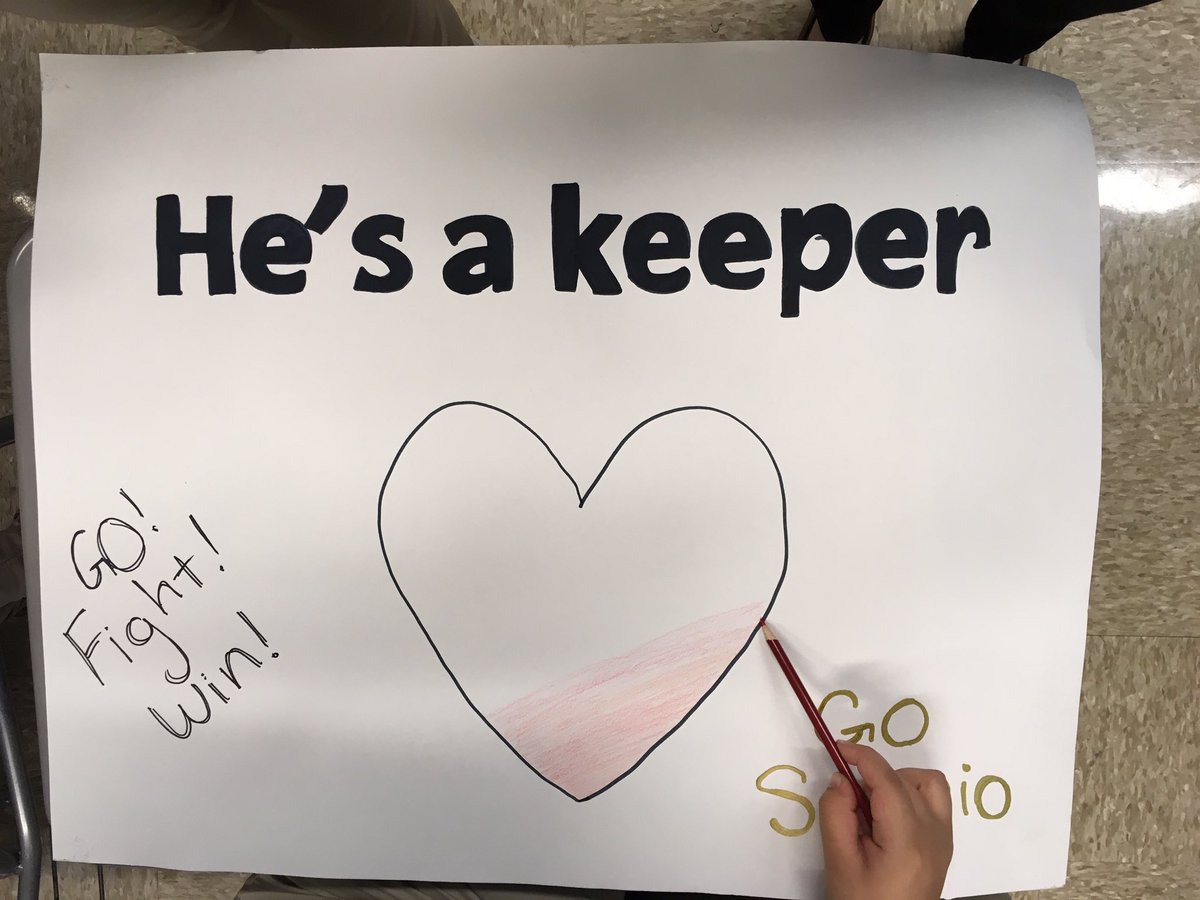 He's a keeper
GO!
Fight!
Win!
GO